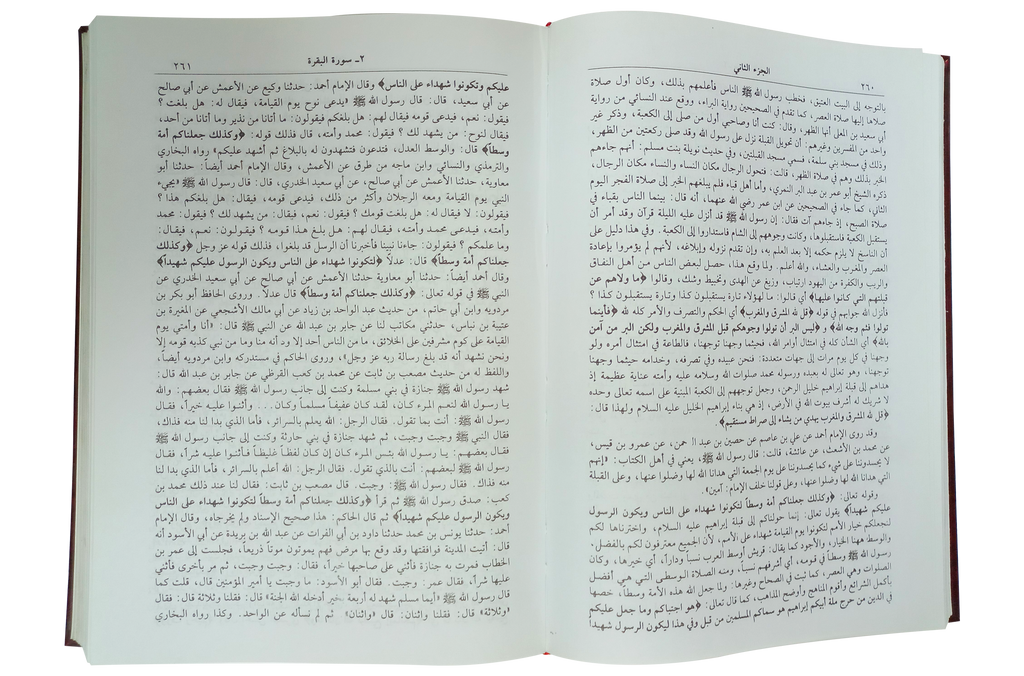 الجزء الثاني
٢٦٠
بالتوجه إلى البيت العتيق، فخطب رسول الله ﷺ الناس فأعلمهم بذلك، وكان أول صلاة
صلاها إليها صلاة العصر، كما تقدم في الصحيحين رواية البراء، ووقع عند النسائي من رواية
أبي سعيد بن المعلى أنها الظهر، وقال: كنت أنا وصاحبي أول من صلى إلى الكعبة، وذكر غير
واحد من المفسرين وغيرهم: أن تحويل القبلة نزل على رسول الله وقد صلى ركعتين من الظهر،
وذلك في مسجد بني سلمة، فسمي مسجد القبلتين، وفي حديث نويلة بنت مسلم: أنهم جاءهم
الخبر بذلك وهم في صلاة الظهر، قالت: فتحول الرجال مكان النساء والنساء مكان الرجال،
ذكره الشيخ أبو عمر بن عبد البر النمري، وأما أهل قباء فلم يبلغهم الخبر إلى صلاة الفجر اليوم
الثاني، كما جاء في الصحيحين عن ابن عمر رضي الله عنهما، أنه قال: بينما الناس بقباء في
صلاة الصبح، إذ جاءهم آت فقال: إن رسول الله ﷺ قد أنزل عليه الليلة قرآن وقد أمر أن
يستقبل الكعبة فاستقبلوها، وكانت وجوههم إلى الشام فاستداروا إلى الكعبة. وفي هذا دليل على
أن الناسخ لا يلزم حكمه إلا بعد العلم به، وإن تقدم نزوله وإبلاغه، لأنهم لم يؤمروا بإعادة
العصر والمغرب والعشاء، والله أعلم. ولما وقع هذا، حصل لبعض الناس من أهل النفاق
والريب والكفرة من اليهود ارتياب، وزيغ عن الهدى وتخبيط وشك، وقالوا ﴿ما ولاهم عن
قبلتهم التي كانوا عليها﴾ أي قالوا: ما لهؤلاء تارة يستقبلون كذا وتارة يستقبلون كذا ؟
فأنزل الله جوابهم في قوله ﴿قل لله المشرق والمغرب﴾ أي الحكم والتصرف والأمر كله لله ﴿فأينما
تولوا فثم وجه الله﴾ و ﴿ليس البر أن تولوا وجوهكم قبل المشرق والمغرب ولكن البر من آمن
بالله﴾ أي الشأن كله في امتثال أوامر الله، فحيثما وجهنا توجهنا، فالطاعة في امتثال أمره ولو
وجهنا في كل يوم مرات إلى جهات متعددة: فنحن عبيده وفي تصرفه، وخدامه حيثما وجهنا
توجهنا، وهو تعالى له بعبده ورسوله محمد صلوات الله وسلامه عليه وأمته عناية عظيمة إذ
هداهم إلى قبلة إبراهيم خليل الرحمن، وجعل توجههم إلى الكعبة المبنية على اسمه تعالى وحده
لا شريك له أشرف بيوت الله في الأرض، إذ هي بناء إبراهيم الخليل عليه السلام ولهذا قال:
﴿قل لله المشرق والمغرب يهدي من يشاء إلى صراط مستقيم﴾.
وقد روى الإمام أحمد عن علي بن عاصم عن حصين بن عبد الرحمن، عن عمرو بن قيس،
عن محمد بن الأشعث، عن عائشة، قالت: قال رسول الله ﷺ، يعني في أهل الكتاب: «إنهم
لا يحسدوننا على شيء كما يحسدوننا على يوم الجمعة التي هدانا الله لها وضلوا عنها، وعلى القبلة
التي هدانا الله لها وضلوا عنها، وعلى قولنا خلف الإمام: آمين».
وقوله تعالى: ﴿وكذلك جعلناكم أمة وسطاً لتكونوا شهداء على الناس ويكون الرسول
عليكم شهيداً﴾ يقول تعالى: إنما حولناكم إلى قبلة إبراهيم عليه السلام، واخترناها لكم
لنجعلكم خيار الأمم لتكونوا يوم القيامة شهداء على الأمم، لأن الجميع معترفون لكم بالفضل.
والوسط ههنا الخيار، والأجود كما يقال: قريش أوسط العرب نسباً وداراً، أي خيرها، وكان
رسول الله ﷺ وسطاً في قومه، أي أشرفهم نسباً، ومنه الصلاة الوسطى التي هي أفضل
الصلوات وهي العصر، كما ثبت في الصحاح وغيرها: ولما جعل الله هذه الأمة وسطاً، خصها
بأكمل الشرائع وأقوم المناهج وأوضح المذاهب، كما قال تعالى: ﴿هو اجتباكم وما جعل عليكم
في الدين من حرج ملة أبيكم إبراهيم هو سماكم المسلمين من قبل وفي هذا ليكون الرسول شهيداً
٢ـ سورة البقرة
٢٦١
عليكم وتكونوا شهداء على الناس﴾ وقال الإمام أحمد: حدثنا وكيع عن الأعمش عن أبي صالح
عن أبي سعيد، قال: قال رسول الله ﷺ «يدعى نوح يوم القيامة، فيقال له: هل بلغت ؟
فيقول: نعم، فيدعى قومه فيقال لهم: هل بلغكم فيقولون: ما أتانا من نذير وما أتانا من أحد،
فيقال لنوح: من يشهد لك ؟ فيقول: محمد وأمته، قال فذلك قوله: ﴿وكذلك جعلناكم أمة
وسطاً﴾ قال: والوسط العدل، فتدعون فتشهدون له بالبلاغ ثم أشهد عليكم» رواه البخاري
والترمذي والنسائي وابن ماجه من طرق عن الأعمش، وقال الإمام أحمد أيضاً: حدثنا أبو
معاوية، حدثنا الأعمش عن أبي صالح، عن أبي سعيد الخدري، قال: قال رسول الله ﷺ «يجيء
النبي يوم القيامة ومعه الرجلان وأكثر من ذلك، فيدعى قومه، فيقال: هل بلغكم هذا ؟
فيقولون: لا فيقال له: هل بلغت قومك ؟ فيقول: نعم، فيقال: من يشهد لك ؟ فيقول: محمد
وأمته، فيدعى محمد وأمته، فيقال لهم: هل بلغ هذا قومه ؟ فيقولون: نعم، فيقال:
وما علمكم ؟ فيقولون: جاءنا نبينا فأخبرنا أن الرسل قد بلغوا، فذلك قوله عز وجل ﴿وكذلك
جعلناكم أمة وسطاً﴾ قال: عدلاً ﴿لتكونوا شهداء على الناس ويكون الرسول عليكم شهيداً﴾
وقال أحمد أيضاً: حدثنا أبو معاوية حدثنا الأعمش عن أبي صالح عن أبي سعيد الخدري عن
النبي ﷺ في قوله تعالى: ﴿وكذلك جعلناكم أمة وسطاً﴾ قال عدلاً. وروى الحافظ أبو بكر بن
مردويه وابن أبي حاتم، من حديث عبد الواحد بن زياد عن أبي مالك الأشجعي عن المغيرة بن
عتيبة بن نباس، حدثني مكاتب لنا عن جابر بن عبد الله عن النبي ﷺ قال: «أنا وأمتي يوم
القيامة على كوم مشرفين على الخلائق، ما من الناس أحد إلا ود أنه منا وما من نبي كذبه قومه إلا
ونحن نشهد أنه قد بلغ رسالة ربه عز وجل»، وروى الحاكم في مستدركه وابن مردويه أيضاً،
واللفظ له من حديث مصعب بن ثابت عن محمد بن كعب القرظي عن جابر بن عبد الله قال:
شهد رسول الله ﷺ جنازة في بني مسلمة وكنت إلى جانب رسول الله ﷺ فقال بعضهم: والله
يا رسول الله لنعم المرء كان، لقد كان عفيفاً مسلماً وكان... وأثنوا عليه خيراً، فقال
رسول الله ﷺ: أنت بما تقول. فقال الرجل: الله يعلم بالسرائر، فأما الذي بدا لنا منه فذاك،
فقال النبي ﷺ وجبت وجبت، ثم شهد جنازة في بني حارثة وكنت إلى جانب رسول الله ﷺ
فقال بعضهم: يا رسول الله بئس المرء كان إن كان لفظاً غليظاً فأثنوا عليه شراً، فقال
رسول الله ﷺ لبعضهم: أنت بالذي تقول. فقال الرجل: الله أعلم بالسرائر، فأما الذي بدا لنا
منه فذاك. فقال رسول الله ﷺ: وجبت. قال مصعب بن ثابت: فقال لنا عند ذلك محمد بن
كعب: صدق رسول الله ﷺ ثم قرأ ﴿وكذلك جعلناكم أمة وسطاً لتكونوا شهداء على الناس
ويكون الرسول عليكم شهيداً﴾ ثم قال الحاكم: هذا صحيح الإسناد ولم يخرجاه، وقال الإمام
أحمد: حدثنا يونس بن محمد حدثنا داود بن أبي الفرات عن عبد الله بن بريدة عن أبي الأسود أنه
قال: أتيت المدينة فوافقتها وقد وقع بها مرض فهم يموتون موتاً ذريعاً، فجلست إلى عمر بن
الخطاب فمرت به جنازة فأثني على صاحبها خير، فقال: وجبت وجبت، ثم مر بأخرى فأثني
عليها شراً، فقال عمر: وجبت. فقال أبو الأسود: ما وجبت يا أمير المؤمنين قال، قلت كما
قال رسول الله ﷺ «أيما مسلم شهد له أربعة بخير أدخله الله الجنة» قال: فقلنا وثلاثة قال: فقال
«وثلاثة» قال: فقلنا واثنان: قال «واثنان» ثم لم نسأله عن الواحد. وكذا رواه البخاري